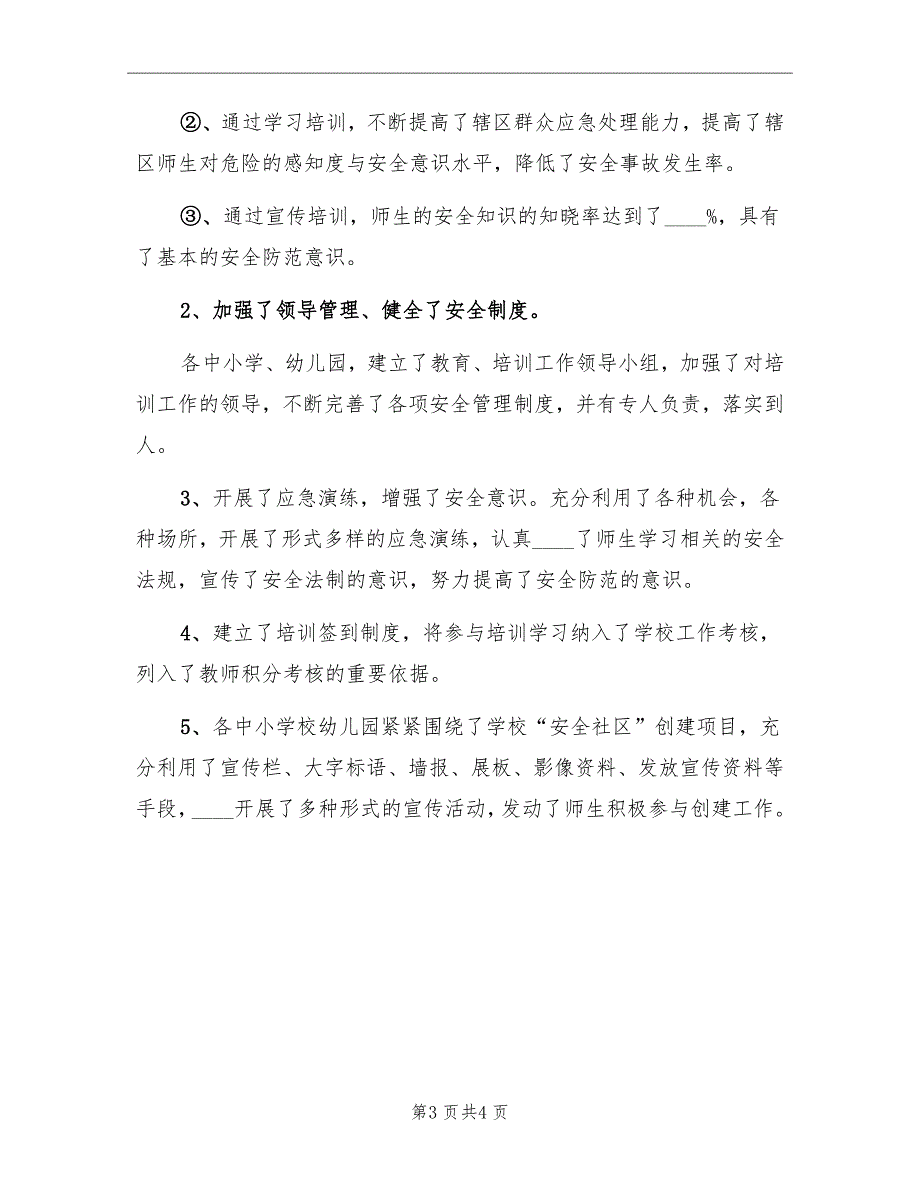 ②、通过学习培训，不断提高了辖区群众应急处理能力，提高了辖
区师生对危险的感知度与安全意识水平，降低了安全事故发生率。
③、通过宣传培训，师生的安全知识的知晓率达到了____%，具有
了基本的安全防范意识。
2、加强了领导管理、健全了安全制度。
各中小学、幼儿园，建立了教育、培训工作领导小组，加强了对培
训工作的领导，不断完善了各项安全管理制度，并有专人负责，落实到
人。
3、开展了应急演练，增强了安全意识。充分利用了各种机会，各
种场所，开展了形式多样的应急演练，认真____了师生学习相关的安全
法规，宣传了安全法制的意识，努力提高了安全防范的意识。
4、建立了培训签到制度，将参与培训学习纳入了学校工作考核，
列入了教师积分考核的重要依据。
5、各中小学校幼儿园紧紧围绕了学校“安全社区”创建项目，充
分利用了宣传栏、大字标语、墙报、展板、影像资料、发放宣传资料等
手段，____开展了多种形式的宣传活动，发动了师生积极参与创建工作。
第3 页共4 页